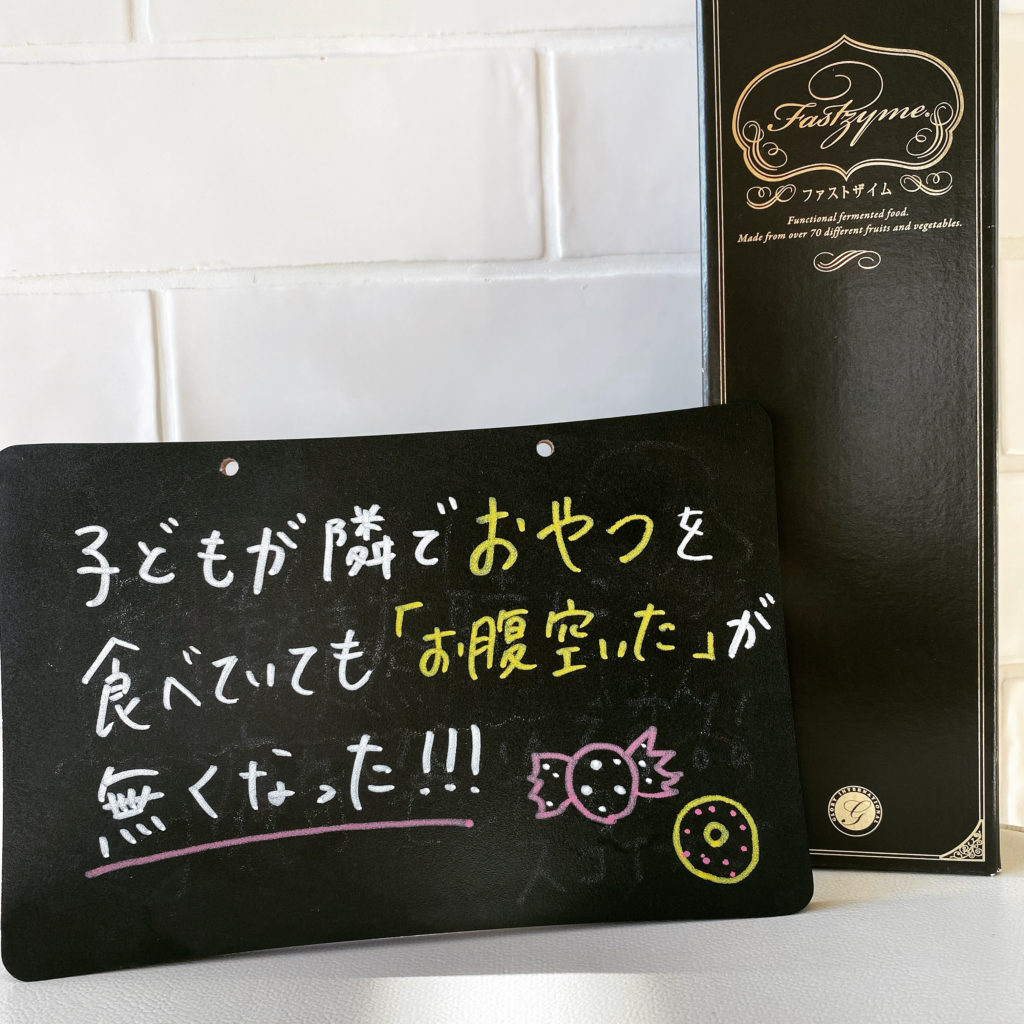 Fastzyme.
ファストザイム
Functional fermented food.
Made from over 70 different fruits and vegetables.
子どもが隣でおやつを
食べていても「お腹空いた」が
無くなった!!!
GLORY INTERNATIONAL
G